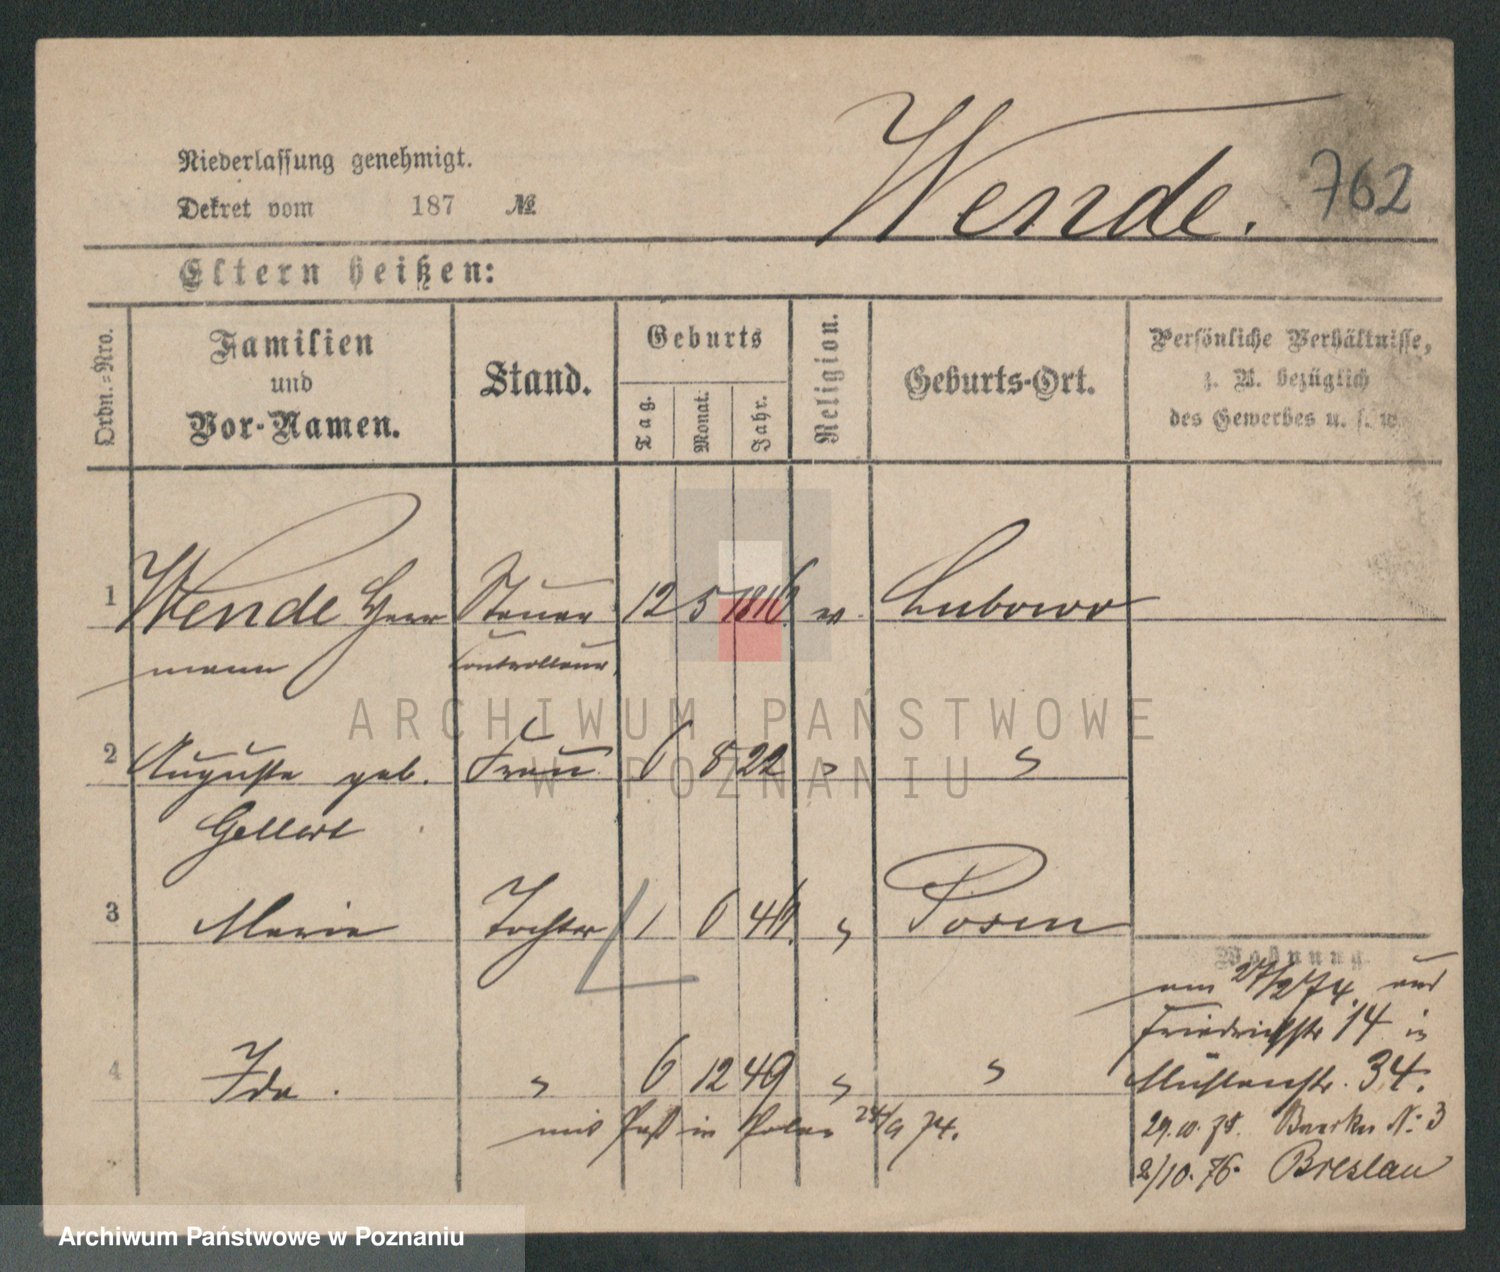 Wende. 762
Niederlassung genehmigt.
Dekret vom 187 №
Eltern heißen:
Ordn.=Nro.
Familien
und
Vor-Namen.
Stand.
Geburts
Tag.
Monat.
Jahr.
Religion.
Geburts-Ort.
Persönliche Verhältnisse,
z. B. bezüglich
des Gewerbes u. s. w.
1 Wende Herr Steuer 12 5 1816 Lubowo
mann Controlleur
2 Auguste geb. Frau 6 8 22 " "
Gellert
3 Marie Tochter 1 6 46 " Posen
Wohnung.
am 27/2 74. aus
Friedrichstr 14 in
4 Ida. " 6 12 49 " " Mühlenstr. 34.
mit Paß in Polen 24/9 74.
29.10.75. No 3
2/10. 76. Breslau
ARCHIWUM PAŃSTWOWE
W POZNANIU
Archiwum Państwowe w Poznaniu